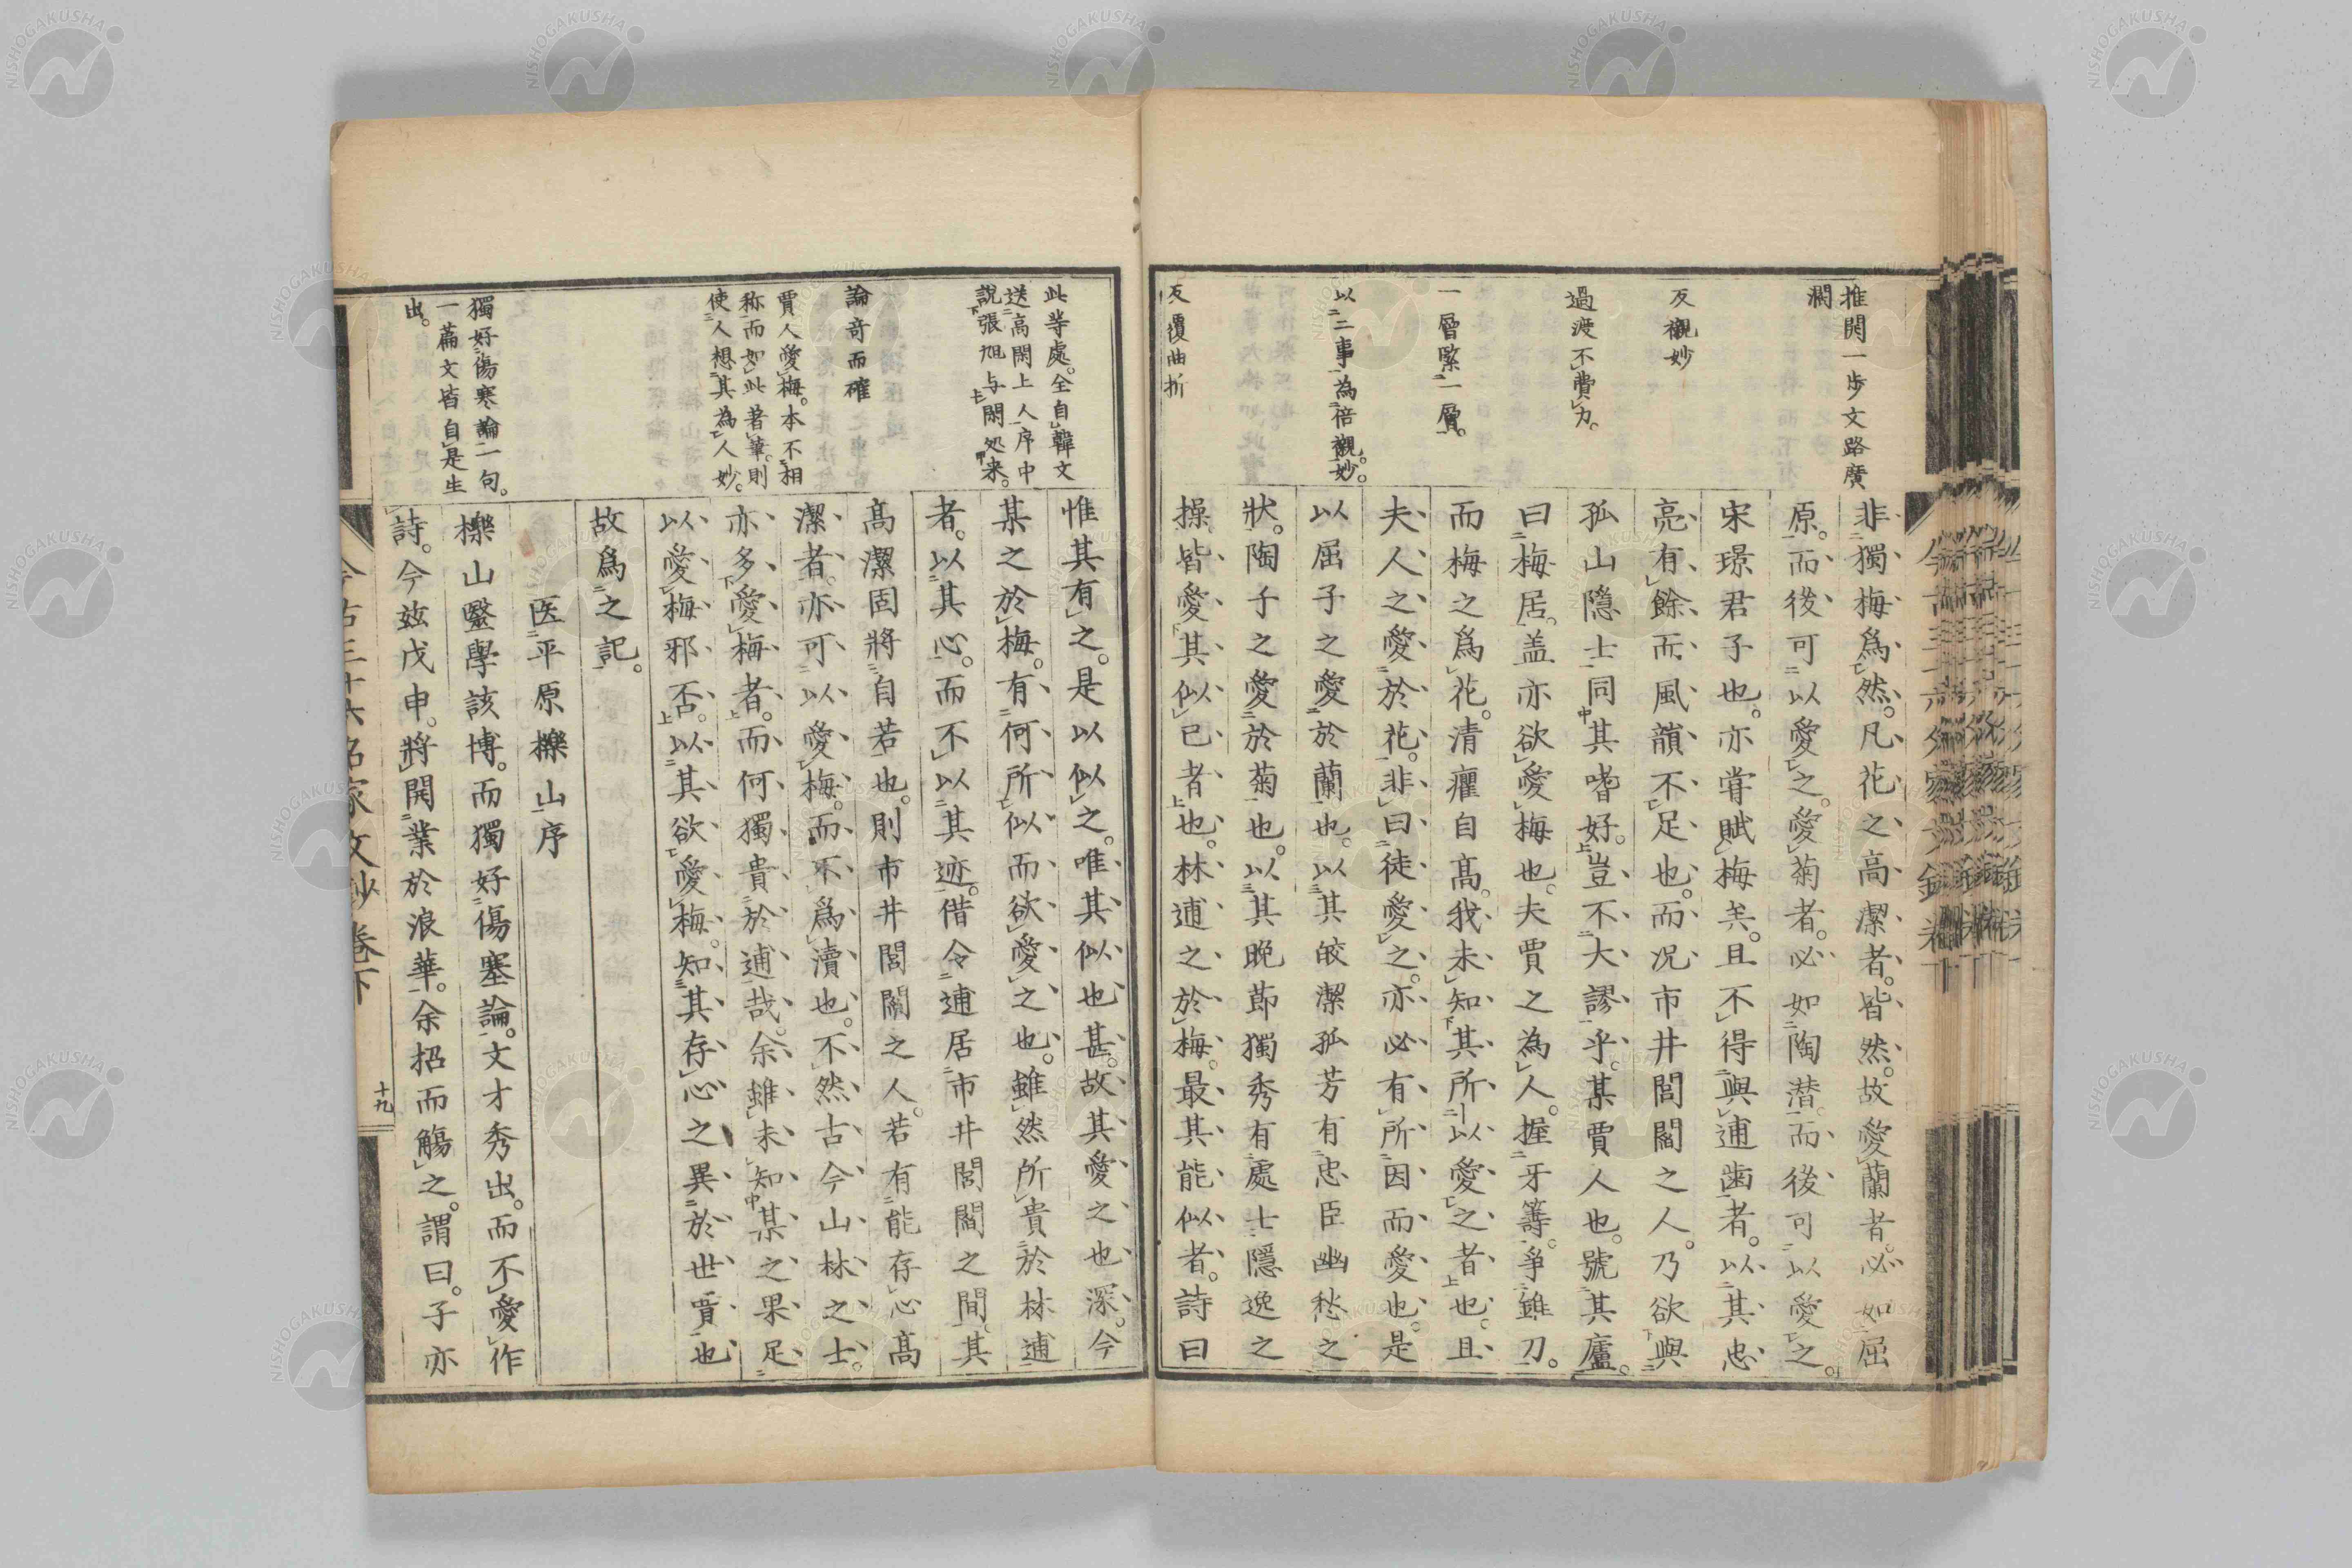 推開一步文路廣
濶
反襯妙
過渡不費力。
一層緊一層。
以二事為倍襯妙。
反覆曲折
非獨梅爲然。凡花之高潔者。皆然。故愛蘭者。必如屈
原。而後可以愛之。愛菊者。必如陶潜。而後可以愛之。
宋璟君子也。亦甞賦梅矣。且不得與逋齒者。以其忠
亮有餘。而風韻不足也。而况市井閭閻之人。乃欲與
孤山隱士同其嗜好。豈不大謬乎。某賈人也。號其廬。
曰梅居。盖亦欲愛梅也。夫賈之為人。握牙籌。爭錐刀。
而梅之爲花。清癯自高。我未知其所以愛之者也。且
夫人之愛於花。非曰徒愛之。亦必有所因而愛也。是
以屈子之愛於蘭也。以其皎潔孤芳有忠臣幽愁之
狀。陶子之愛於菊也。以其晚節獨秀有處士隱逸之
操。皆愛其似已者也。林逋之於梅。最其能似者。詩曰
此等處。全自韓文
送高閑上人序中
説張旭与閑処来。
論奇而確
賈人愛梅。本不相
称而如此著筆。則
使人想其為人妙。
獨好傷寒論一句。
一篇文皆自是生
出。
惟其有之。是以似之。唯其似也甚。故其愛之也深。今
某之於梅。有何所似而欲愛之也。雖然所貴於林逋
者。以其心。而不以其迹。借令逋居市井閭閻之間。其
高潔固將自若也。則市井閭閻之人。若有能存心高
潔者。亦可以愛梅。而不爲瀆也。不然古今山林之士。
亦多愛梅者。而何獨貴於逋哉。余雖未知某之果足
以愛梅邪否。以其欲愛梅。知其存心之異於世賈也
故爲之記。
医平原櫟山序
櫟山毉學該博。而獨好傷塞論。文才秀出。而不愛作
詩。今玆戊申。將開業於浪華。余招而觴之。謂曰。子亦
今古三十六名家文鈔 卷下
十九